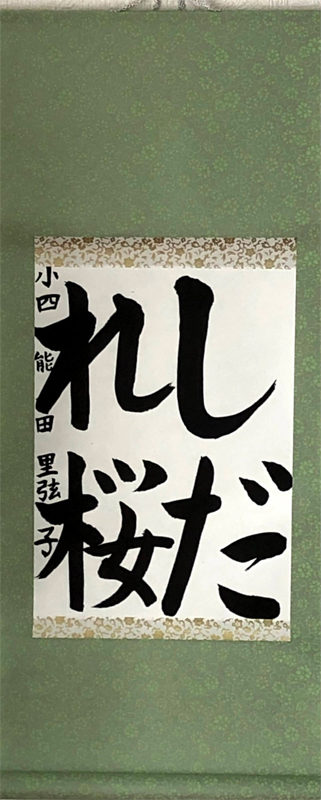 しだ
れ桜
小四 能田 里弦子